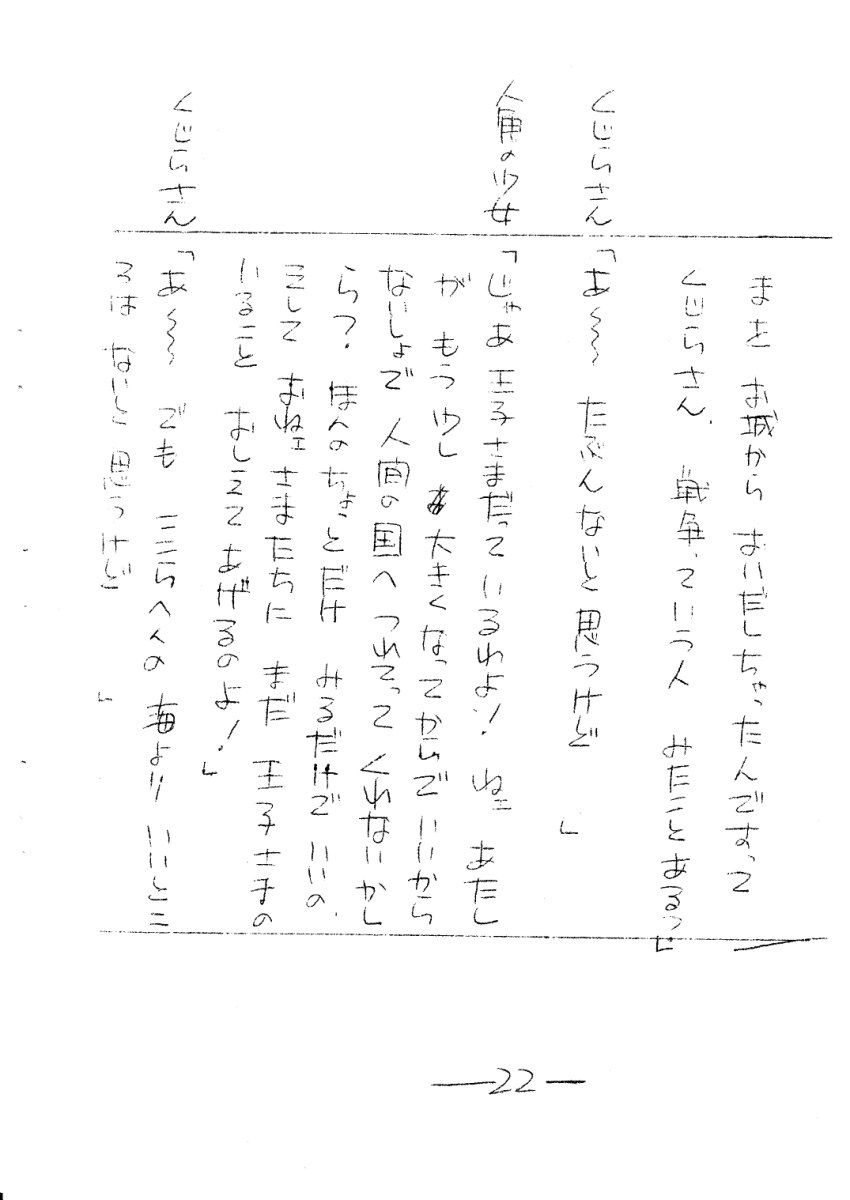 まを お城から おいだしちゃったんですって
くじらさん、戦争っていう人 みたことある?」
くじらさん「あ～～～ たぶんないと思うけど 」
人魚の少女「じゃあ 王子さまだっているわよ! ねェ あたし
が もう少し 大きくなってからでいいから
ないしょで 人間の国へ つれてって くれないかし
ら? ほんのちょっとだけ みるだけでいいの、
そして おねェさまたちに まだ 王子さまの
いること おしえてあげるのよ!」
くじらさん「あ～～～ でも ここらへんの 海よりいいとこ
ろは ないと思うけど 」
—22—